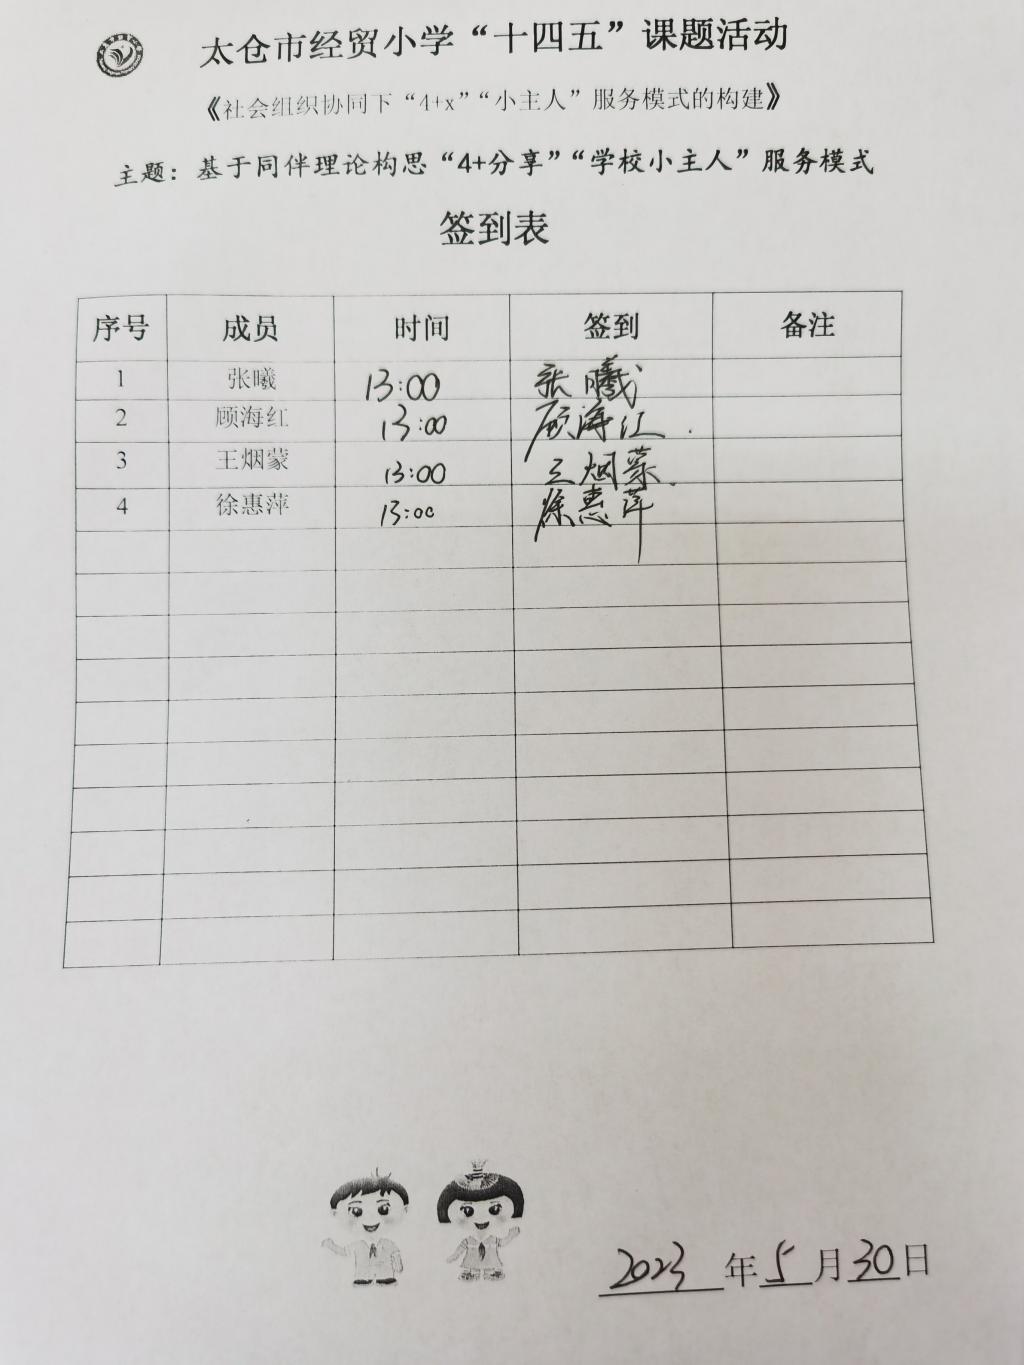 太仓市经贸小学“十四五”课题活动
《社会组织协同下“4+x”“小主人”服务模式的构建》
主题：基于同伴理论构思“4+分享”“学校小主人”服务模式
签到表
序号 成员 时间 签到 备注
1 张曦 13:00 张曦
2 顾海红 13:00 顾海红
3 王烟蒙 13:00 王烟蒙
4 徐惠萍 13:00 徐惠萍
2023年5月30日